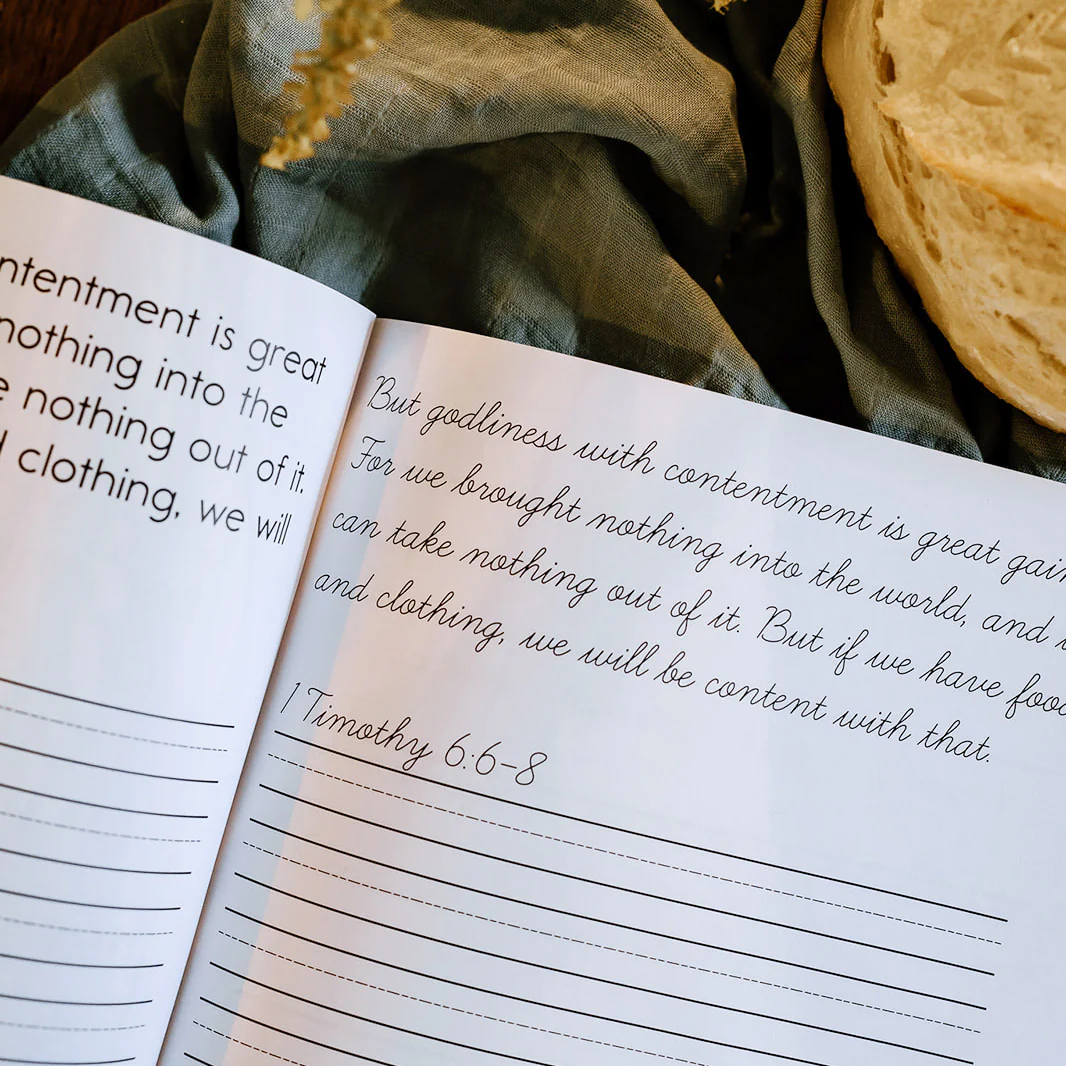 ntentment is great
nothing into the
nothing out of it.
clothing, we will
But godliness with contentment is great gain
For we brought nothing into the world, and
can take nothing out of it. But if we have food
and clothing, we will be content with that.
1 Timothy 6:6-8